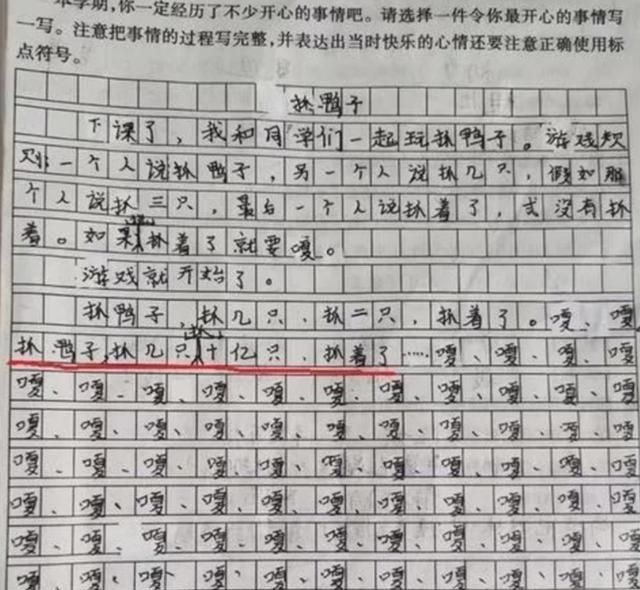 本学期,你一定经历了不少开心的事情吧。请选择一件令你最开心的事情写
一写。注意把事情的过程写完整,并表达出当时快乐的心情还要注意正确使用标
点符号。
抓鸭子
下课了,我和同学们一起玩抓鸭子。游戏规
则:一个人说抓鸭子,另一个人说抓几只,假如那
个人说抓三只,最后一个人说抓着了,或没有抓
着。如果抓着了就要嘎。
游戏就开始了。
抓鸭子、抓几只、抓二只、抓着了。嘎、嘎
抓鸭子,抓几只抓十亿只、抓着了……嘎、嘎、嘎、嘎、
嘎、嘎、嘎、嘎、嘎、嘎、嘎、嘎、嘎、嘎、嘎
嘎、嘎、嘎、嘎、嘎、嘎、嘎、嘎、嘎、嘎、嘎
嘎、嘎、嘎、嘎、嘎、嘎、嘎、嘎、嘎、嘎、嘎
嘎、嘎、嘎、嘎、嘎、嘎、嘎、嘎、嘎、嘎、嘎
嘎、嘎、嘎、嘎、嘎、嘎、嘎、嘎、嘎、嘎、嘎
嘎、嘎、嘎、嘎、嘎、嘎、嘎、嘎、嘎、嘎、嘎